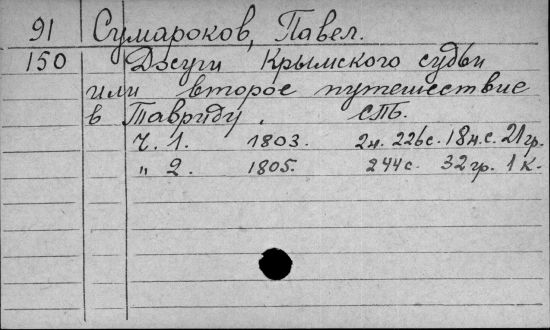 91 Сумароков, Павел.
150 Досуги Крымского судьи
или второе путешествие
в Тавриду. СПБ.
Ч. 1. 1803. 2н. 226с. 18н.с. 21гр.
„ 2. 1805. 244с. 32гр. 1к.